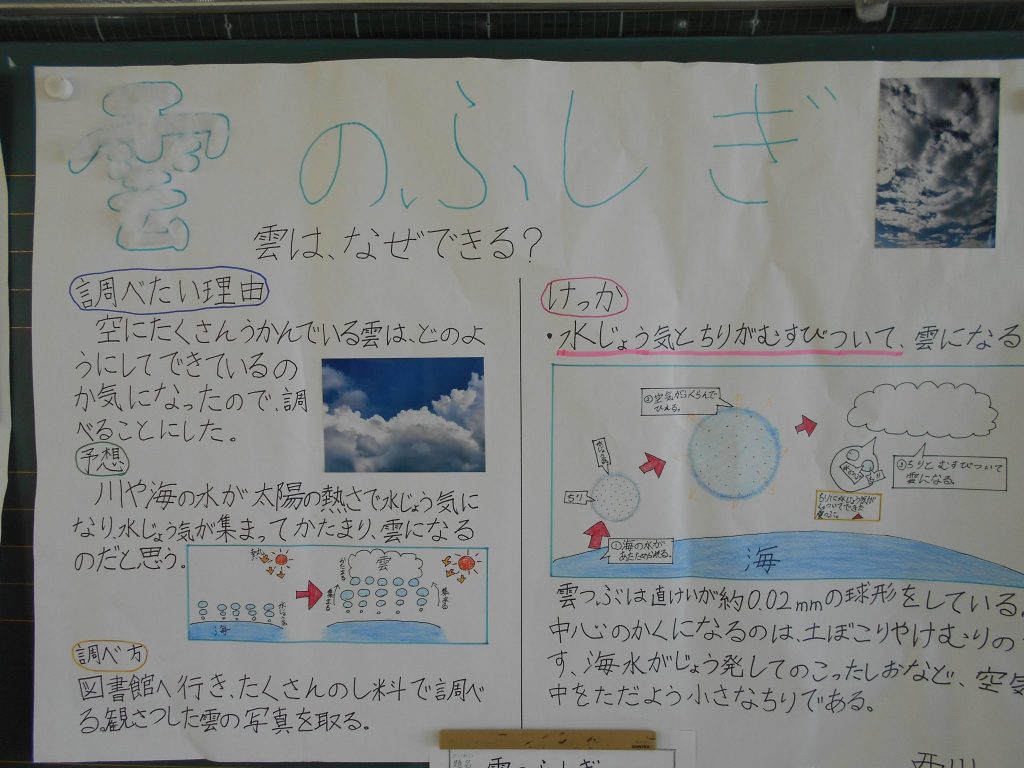 雲のふしぎ
雲は、なぜできる?
調べたい理由
空にたくさんうかんでいる雲は、どのよ
うにしてできているの
か気になったので、調
べることにした。
予想
川や海の水が太陽の熱さで水じょう気に
なり、水じょう気が集まってかたまり、雲になる
のだと思う。
熱
水じょう気
海
かたまる
雲
集まる
集まる
調べ方
図書館へ行き、たくさんのし料で調べ
る。観さつした雲の写真を取る。
けっか
・水じょう気とちりがむすびついて、雲になる
②空気がふくらんで
ひえる。
ちり
①海の水が
あたためられる。
③ちりとむすびついて
雲になる。
海
雲つぶは直けいが約0.02mmの球形をしている。
中心のかくになるのは、土ぼこりやけむりの
す、海水がじょう発してのこったしおなど、空気
中をただよう小さなちりである。
題名
雲のふしぎ
西川